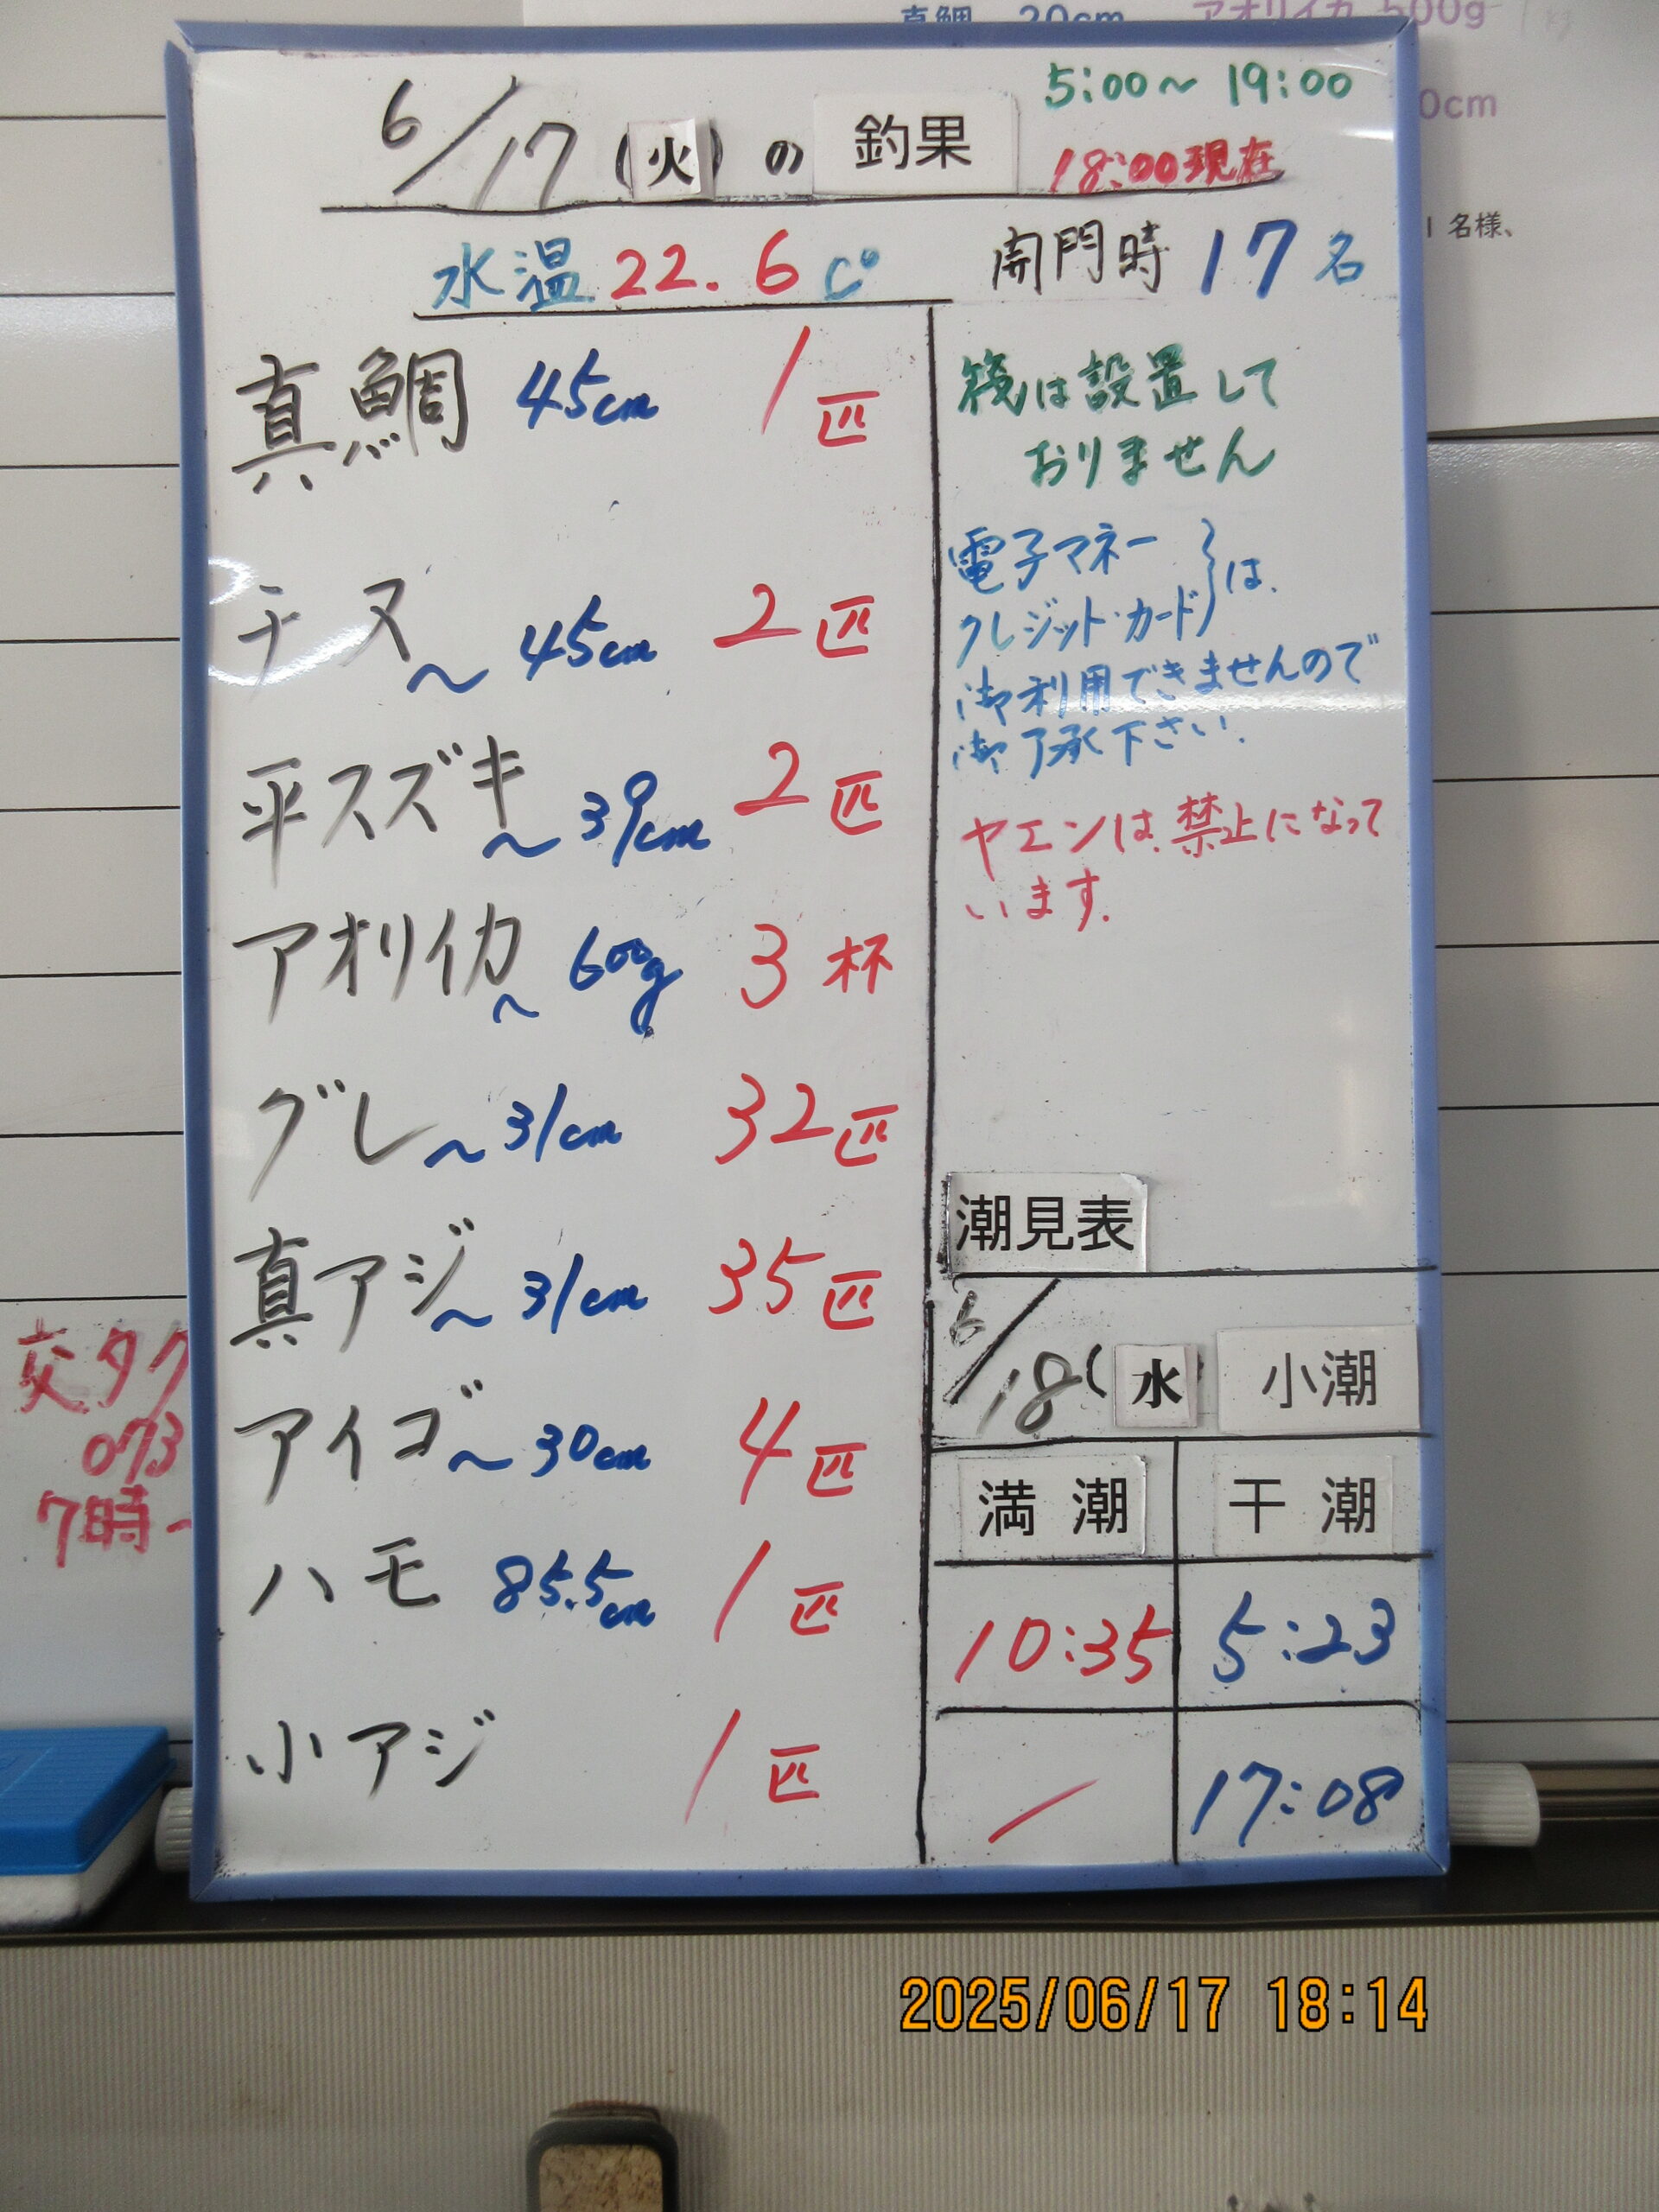 真鯛 30cm アオリイカ 500g
0cm
1名様、
6/17(火)の釣果
5:00～19:00
18:00現在
水温22.6C°
開門時17名
真鯛 45cm 1匹
チヌ～45cm 2匹
平スズキ～39cm 2匹
アオリイカ～600g 3杯
グレ～31cm 32匹
真アジ～31cm 35匹
アイゴ～30cm 4匹
ハモ 85.5cm 1匹
小アジ 1匹
筏は設置して
おりません
電子マネー
クレジット・カード}は、
御利用できませんので
御了承下さい.
ヤエンは、禁止になって
います.
潮見表
6/18(水) 小潮
満潮 干潮
10:35 5:23
/ 17:08
交タク
073
7時-
2025/06/17 18:14